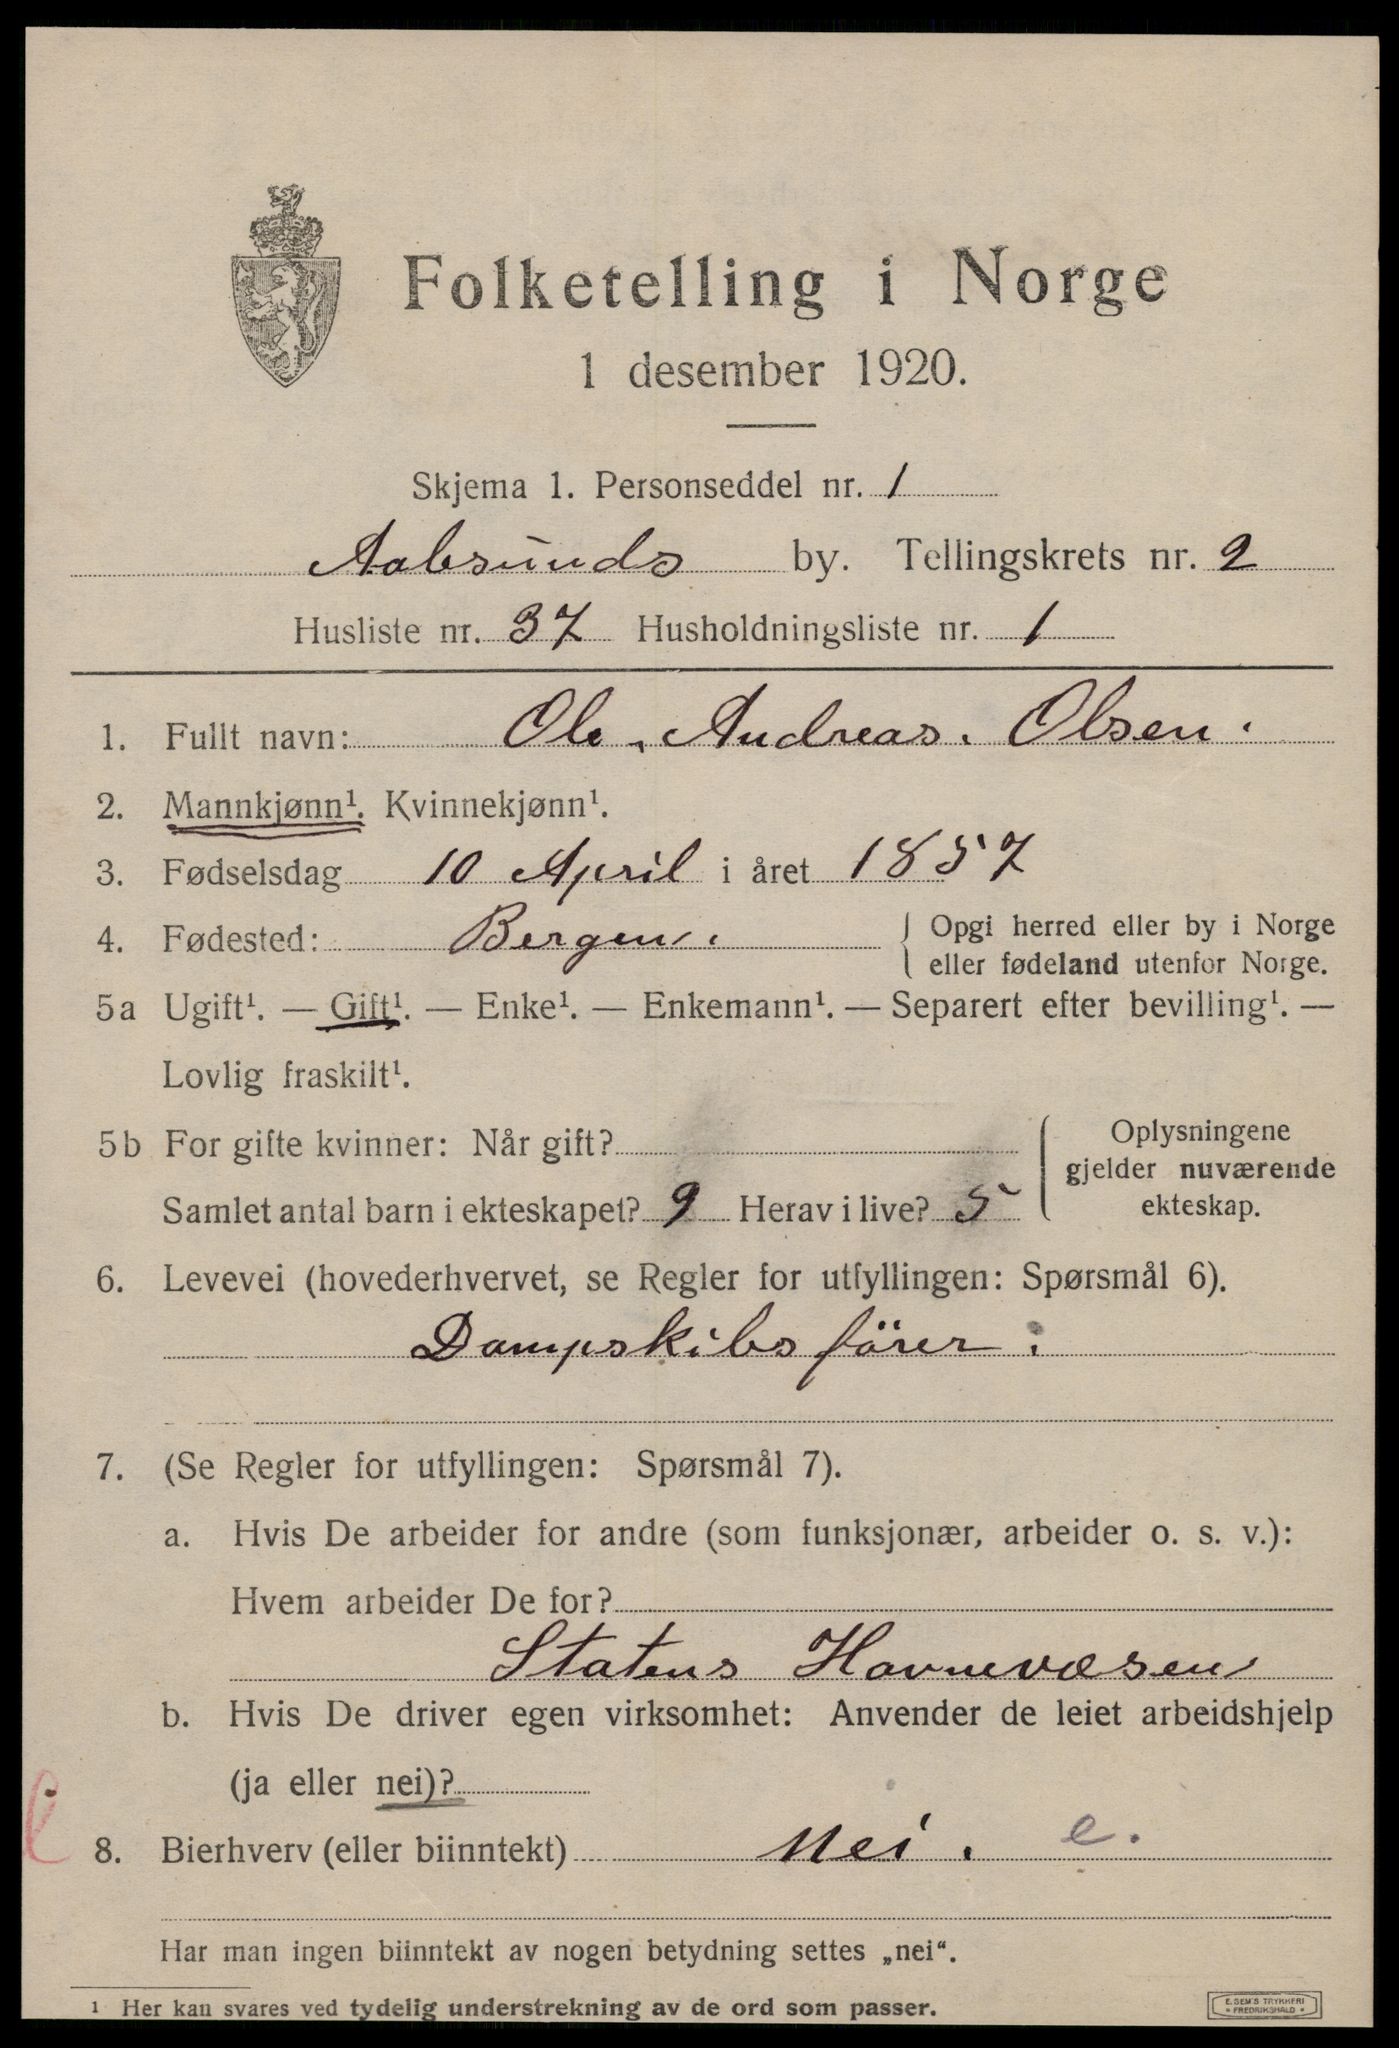 Folketelling i Norge
1 desember 1920.
Skjema 1. Personseddel nr. 1
Aalesunds by. Tellingskrets nr. 2
Husliste nr. 37 Husholdningsliste nr. 1
1. Fullt navn: Ole Andreas Olsen.
2. Mannkjønn¹. Kvinnekjønn¹.
3. Fødselsdag 10 April i året 1857
4. Fødested: Bergen. { Opgi herred eller by i Norge
eller fødeland utenfor Norge.
5a Ugift¹. — Gift¹. — Enke¹. — Enkemann¹. — Separert efter bevilling¹. —
Lovlig fraskilt¹.
5b For gifte kvinner: Når gift?
Samlet antal barn i ekteskapet? 9 Herav i live? 5
Oplysningene
gjelder nuværende
ekteskap.
6. Levevei (hovederhvervet, se Regler for utfyllingen: Spørsmål 6).
Dampskibsförer.
7. (Se Regler for utfyllingen: Spørsmål 7).
a. Hvis De arbeider for andre (som funksjonær, arbeider o. s. v.):
Hvem arbeider De for?
Statens Havnevæsen
b. Hvis De driver egen virksomhet: Anvender de leiet arbeidshjelp
(ja eller nei)?
8. Bierhverv (eller biinntekt) Nei. e.
Har man ingen biinntekt av nogen betydning settes „nei“.
¹ Her kan svares ved tydelig understrekning av de ord som passer.
E. SEM'S TRYKKERI
FREDRIKSHALD